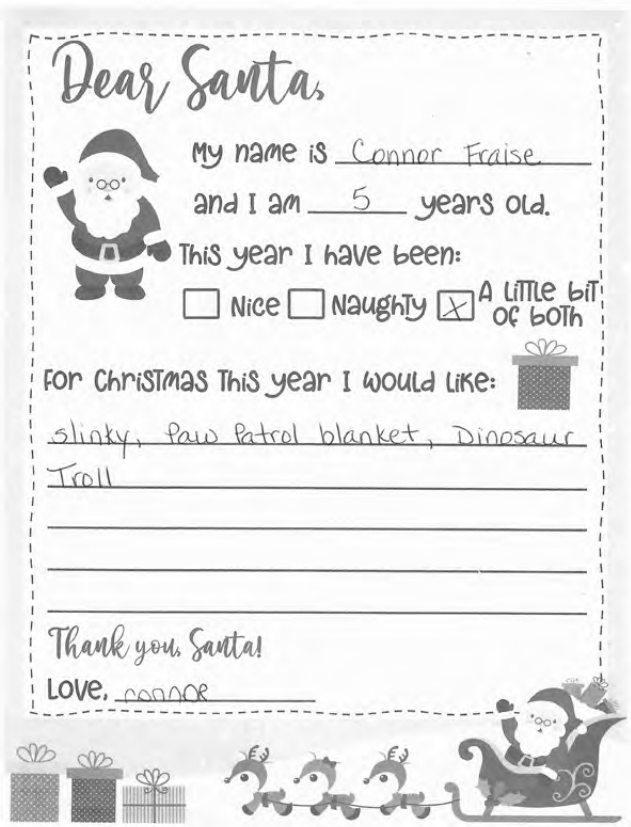 Dear Santa,
My name is Connor Fraise
and I am 5 years old.
This year I have been:
Nice Naughty X A little bit of both
For Christmas this year I would like:
slinky, Paw Patrol blanket, Dinosaur
Troll
Thank you, Santa!
Love, connor